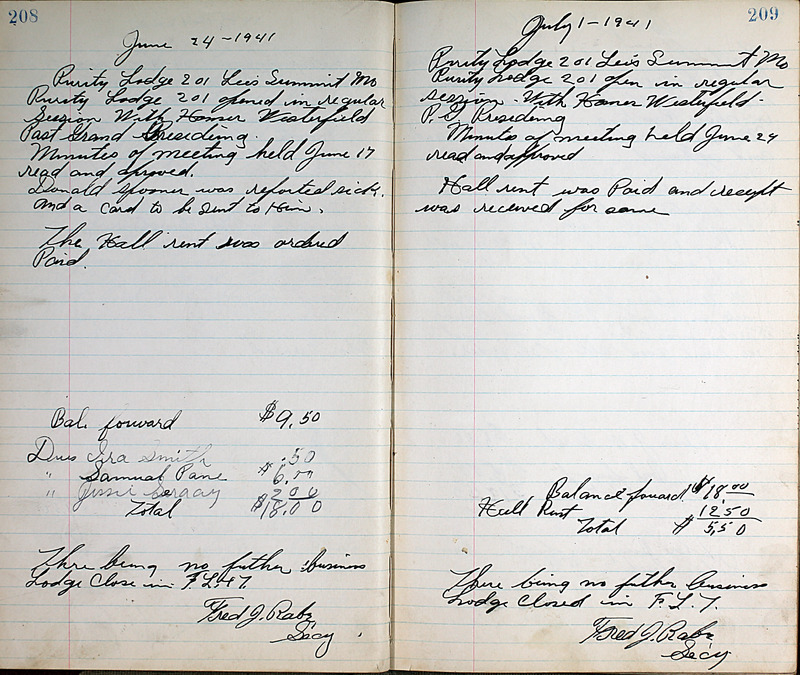 208
June 24-1941
Purity Lodge 201 Lee's Summit Mo
Purity Lodge 201 opened in regular
Session With Homer Westerfield
Past Grand Presiding.
Minutes of meeting held June 17
read and aproved.
Donald Spooner was reported sick.
And a card to be sent to Him.
The Hall rent was ordered
Paid.
Bal. forward $9.50
Dues Ira Smith .50
" Samual Pane $6.00
" Jesse 2 00
Total $18.00
There being no futher business
Lodge Close in F. L. & T.
Fred J. Rabe
Secy.
209
July 1-1941
Purity Lodge 201 Lee's Summit Mo
Purity Lodge 201 open in regular
session. With Homer Westerfield.
P. G. Presiding
Minutes of meeting held June 24
read and approved
Hall rent was Paid and receipt
was received for same
Balance forward $18.00
Hall Rent 12 50
Total $5,50
There being no futher business
Lodge Closed in F. L. T.
Fred J. Rabe
Secy